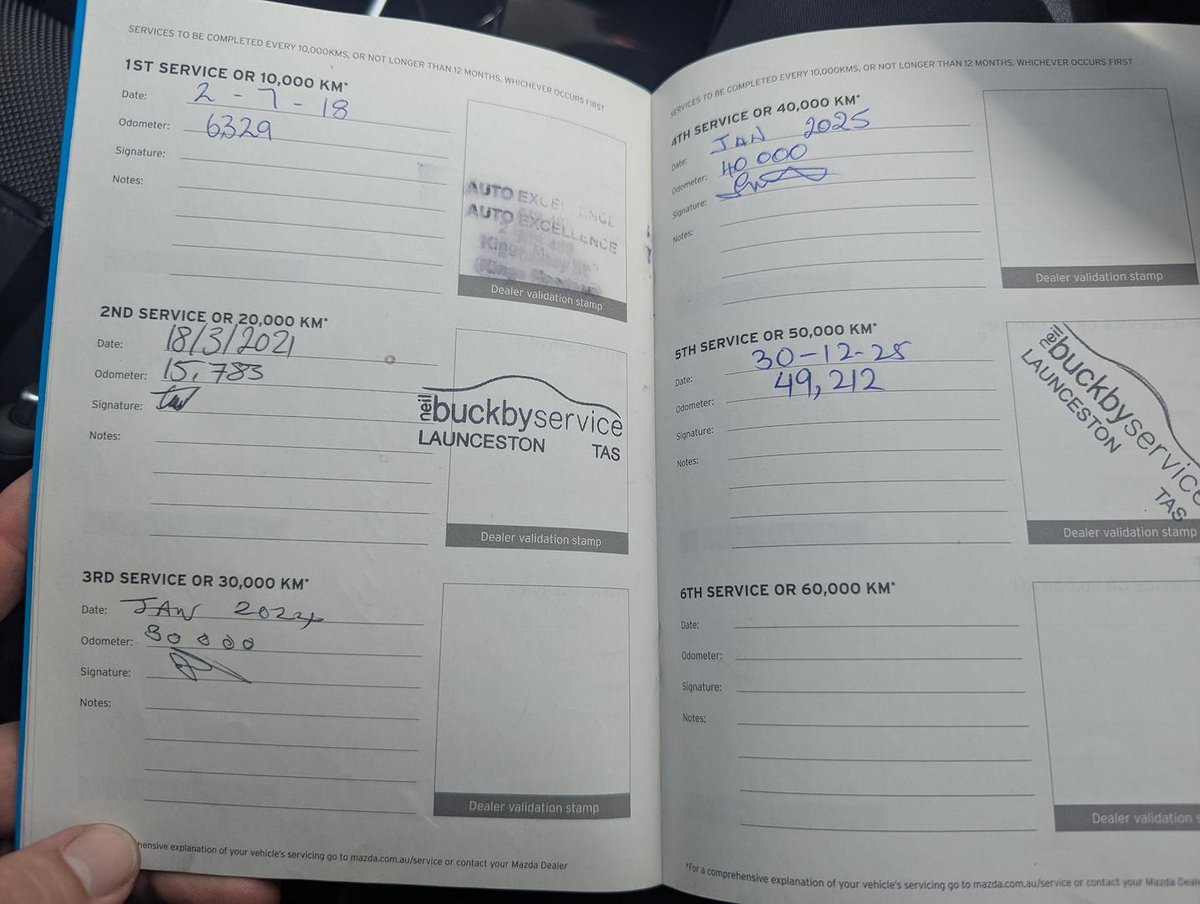 SERVICES TO BE COMPLETED EVERY 10,000KMS, OR NOT LONGER THAN 12 MONTHS, WHICHEVER OCCURS FIRST
1ST SERVICE OR 10,000 KM*
Date: 2-7-18
Odometer: 6329
Signature:
Notes:
AUTO EXCELLENCE
AUTO EXCELLENCE
Dealer validation stamp
2ND SERVICE OR 20,000 KM*
Date: 18/3/2021
Odometer: 15,783
Signature:
Notes:
neil buckbyservice
LAUNCESTON TAS
Dealer validation stamp
3RD SERVICE OR 30,000 KM*
Date: JAN 2024
Odometer: 30000
Signature:
Notes:
Dealer validation stamp
hensive explanation of your vehicle's servicing go to mazda.com.au/service or contact your Mazda Dealer
SERVICES TO BE COMPLETED EVERY 10,000KMS, OR NOT LONGER THAN 12 MONTHS, WHICHEVER OCCURS FIRST
4TH SERVICE OR 40,000 KM*
Date: JAN 2025
Odometer: 40000
Signature:
Notes:
Dealer validation stamp
5TH SERVICE OR 50,000 KM*
Date: 30-12-25
Odometer: 49,212
Signature:
Notes:
neil buckbyservice
LAUNCESTON TAS
Dealer validation stamp
6TH SERVICE OR 60,000 KM*
Date:
Odometer:
Signature:
Notes:
Dealer validation s
*For a comprehensive explanation of your vehicle's servicing go to mazda.com.au/service or contact your Mazda Deale